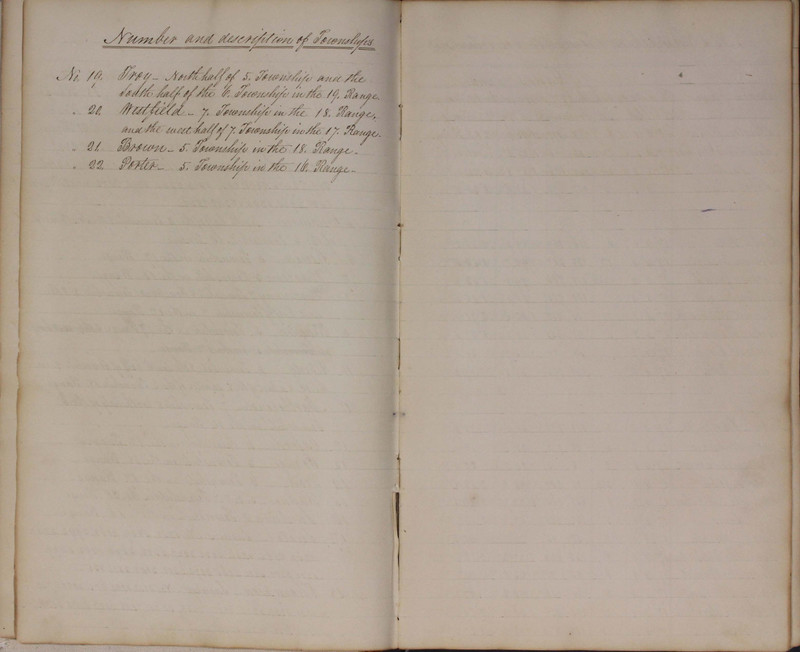 Number and description of Townships
No. 19. Troy - North half of 5. Township and the
South half of the 6. Township in the 19. Range.
" 20. Westfield - 7. Township in the 18. Range,
and the west half of 7. Township in the 17. Range.
" 21. Brown - 5. Township in the 18. Range -
" 22. Porter - 5. Township in the 16. Range -